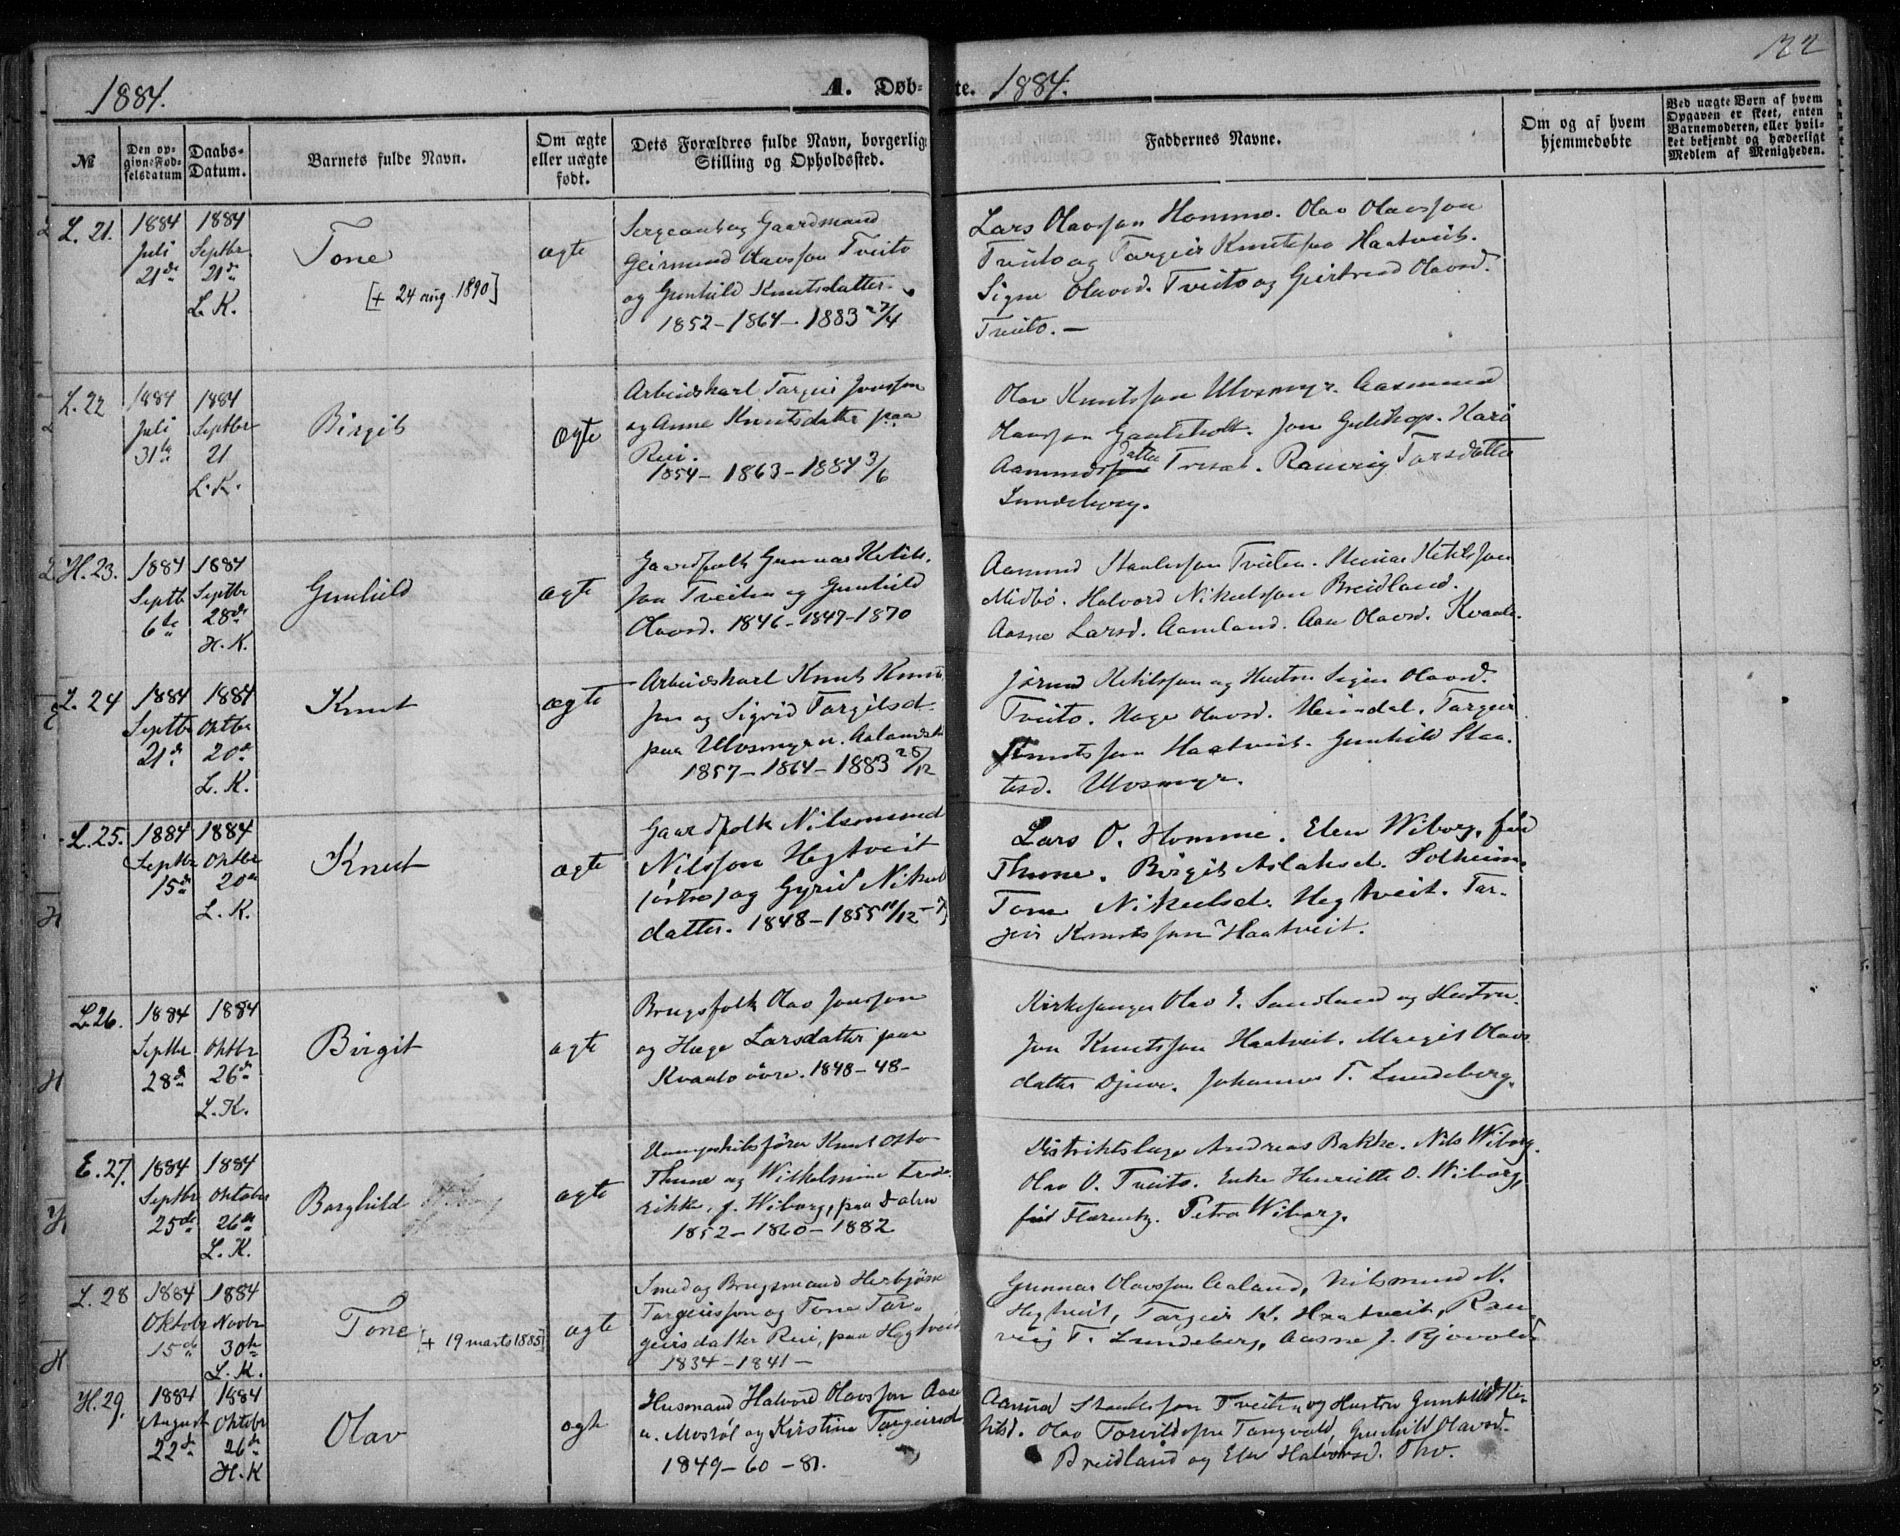 1884.
A. Døb-
te. 1884.
122
No
Den op-
givne Fød-
selsdatum
Daabs-
Datum.
Barnets fulde Navn.
Om ægte
eller uægte
født.
Dets Forældres fulde Navn, borgerlig
Stilling og Opholdssted.
Faddernes Navne.
Om og af hvem
hjemmedøbte
Ved uægte Børn af hvem
Opgaven er skeet, enten
Barnemoderen, eller hvil-
ket bekjendt og hæderligt
Medlem af Menigheden.
L. 21.
1884
Juli
21de
1884
Septbr
21de
L. K.
Tone
[+ 24 aug. 1890]
ægte
Sergeant og Gaardmand
Geirmund Olavsson Tveito
og Gunhild Knutsdatter.
1852 - 1864 - 1883 2/4
Lars Olavsson Homme. Olav Olavsson
Tveito og Targeir Knutsson Haatveit.
Signe Olavsd. Tveito og Geirtrud Olavsd.
Tveito. —
L. 22
1884
Juli
31te
1884
Septbr
21
L. K.
Birgit
ægte
Arbeidskarl Targei Jonsson
og Anne Knutsdatter paa
Rui.
1854 - 1863 - 1884 3/6
Olav Knutsson Ulvsmyr. Aasmund
Olavsson Gautsholt. Jon Gulikop. Kari
Aamunds datter Tvisæt. Ranveig Tarsdatter
Lundeberg.
H. 23.
1884
Septbr
6te
1884
Septbr
28de
H. K.
Gunhild
ægte
Gaardfolk Gunnar Ketils-
son Tveiten og Gunhild
Olavsd. 1846 - 1847 - 1870
Aamund Staalesson Tveiten. Steinar Ketilsson
Midbø. Halvord Nikulsson Breidland.
Aasne Larsd. Aamland. Aan Olavsd. Kvaale.
L. 24
1884
Septbr
21de
1884
Oktbr
20de
L. K.
Knut
ægte
Arbeidskarl Knut Knuts
son og Sigrid Targilsd.
paa Ulvsmyr u. Aalands
1857 - 1864 - 1883 28/12
Jørund Ketilsson og Hustru Signe Olavsd.
Tveito. Hæge Olavsd. Heimdal. Targeir
Knutsson Haatveit. Gunhild Staa-
lesd. Ulvsmyr.
L. 25.
1884
Septbr
15de
1884
Oktbr
20de
L. K.
Knut
ægte
Gaardfolk Nilsmund
Nilsson Hegtveit
(østre) og Gyrid Nikuls
datter. 1848 - 1855 11/12
Lars O. Homme. Elen Wiborg, fød
Thune. Birgit Aslaksd. Solheim.
Tone Nikulsd. Hegtveit. Tar-
geir Knutsson Haatveit.
L. 26.
1884
Septbr
28de
1884
Oktbr
26de
L. K.
Birgit
ægte
Brugsfolk Olav Jonsson
og Hæge Larsdatter paa
Kvaale øvre. 1848 - 48 -
Kirkesanger Olav E. Sandland og Hustru.
Jon Knutsson Haatveit. Margit Olavs
datter Djuve. Johannes T. Lundeberg.
E. 27.
1884
Septbr
25de
1884
Oktobr
26de
L. K.
Borghild
ægte
Dampskibsfører Knut Osto
Thune og Wilhelmine Frede
rikke, f. Wiborg, paa Dalen
1852 - 1860 - 1882
Distriktslæge Andreas Bakke. Nils Wiborg.
Olav O. Tveito. Enke Henriette O. Wiborg,
fød Florentz. Petra Wiborg.
L. 28
1884
Oktobr
15de
1884
Novbr
30te
L. K.
Tone
[+ 19 marts 1885]
ægte
Smed og Brugsmand Herbjørn
Targeirsson og Tone Tar-
geirsdatter Rui, paa Hegtveit
1834 - 1841 -
Gunnar Olavsson Aaland, Nilsmund N.
Hegtveit, Targeir K. Haatveit, Ran
veig T. Lundeberg, Aasne J. Rjovold
H. 29.
1884
August
22de
1884
Oktobr
26de
H. K
Olav
ægte
Husmand Halvord Olavsson Aase
u. Mostøl og Kirstine Targeirsd
1849 - 60 - 81.
Aamund Staalesson Tveiten og Hustru Gunhild Ke-
tilsd. Olav Torvildsen Tangvald, Gunhild Olavsd.
Breidland og Elen Halvorsd. Tho.